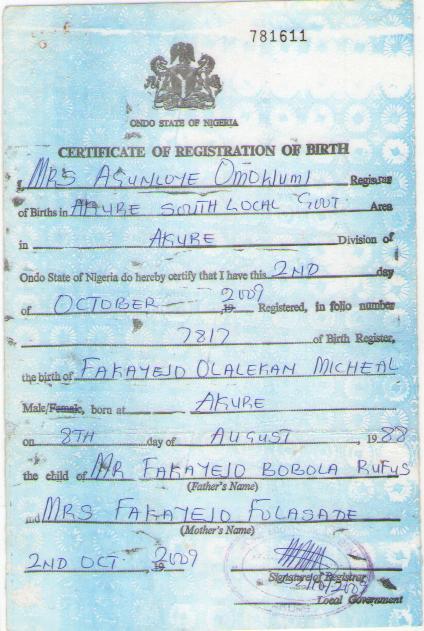 781611
ONDO STATE OF NIGERIA
CERTIFICATE OF REGISTRATION OF BIRTH
I, MRS AGUNLOYE OMOKIUMI Registrar
of Births in AKURE SOUTH LOCAL GOVT. Area
in AKURE Division of
Ondo State of Nigeria do hereby certify that I have this 2ND day
of OCTOBER 19 2009 Registered, in folio number
7817 of Birth Register,
the birth of FAKAYEJO OLALEKAN MICHEAL
Male/Female, born at AKURE
on 8TH day of AUGUST, 1988
the child of MR FAKAYEJO BOBOLA RUFUS
(Father's Name)
and MRS FAKAYEJO FOLASADE
(Mother's Name)
2ND OCT. 19 2009
Signature of Registrar
Local Government